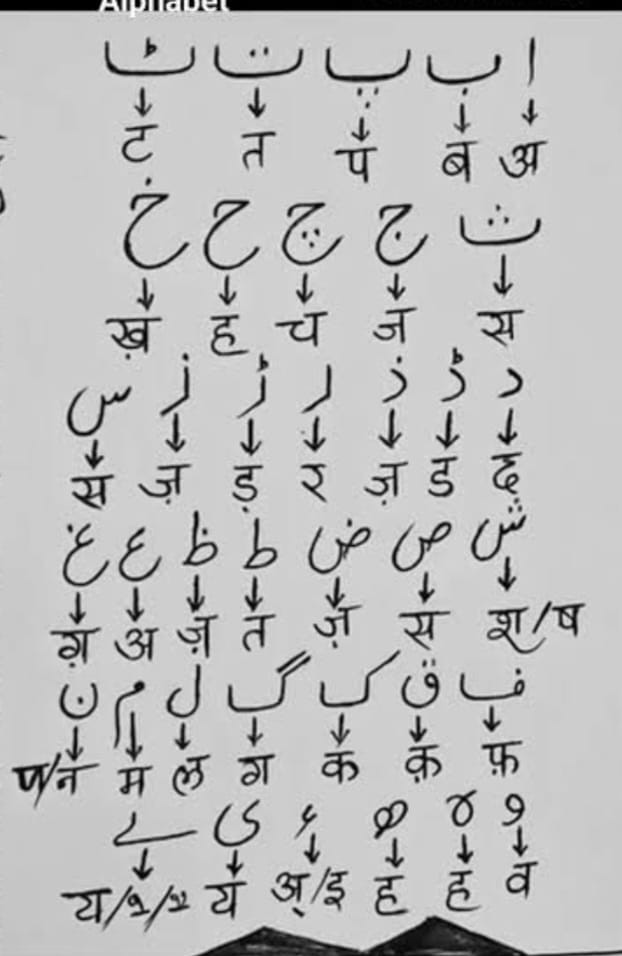 Alphabet
ا ب پ ت ٹ
अ ब प त ट
ث ج چ ح خ
स ज च ह ख़
د ڈ ذ ر ڑ ز س
द ड ज़ र ड़ ज़ स
ش ص ض ط ظ ع غ
श/ष स ज़ त ज़ अ ग़
ف ق ک گ ل م ن
फ़ क़ क ग ल म ण/न
و ہ ھ ء ی ے
व ह ह अ्/इ य य/